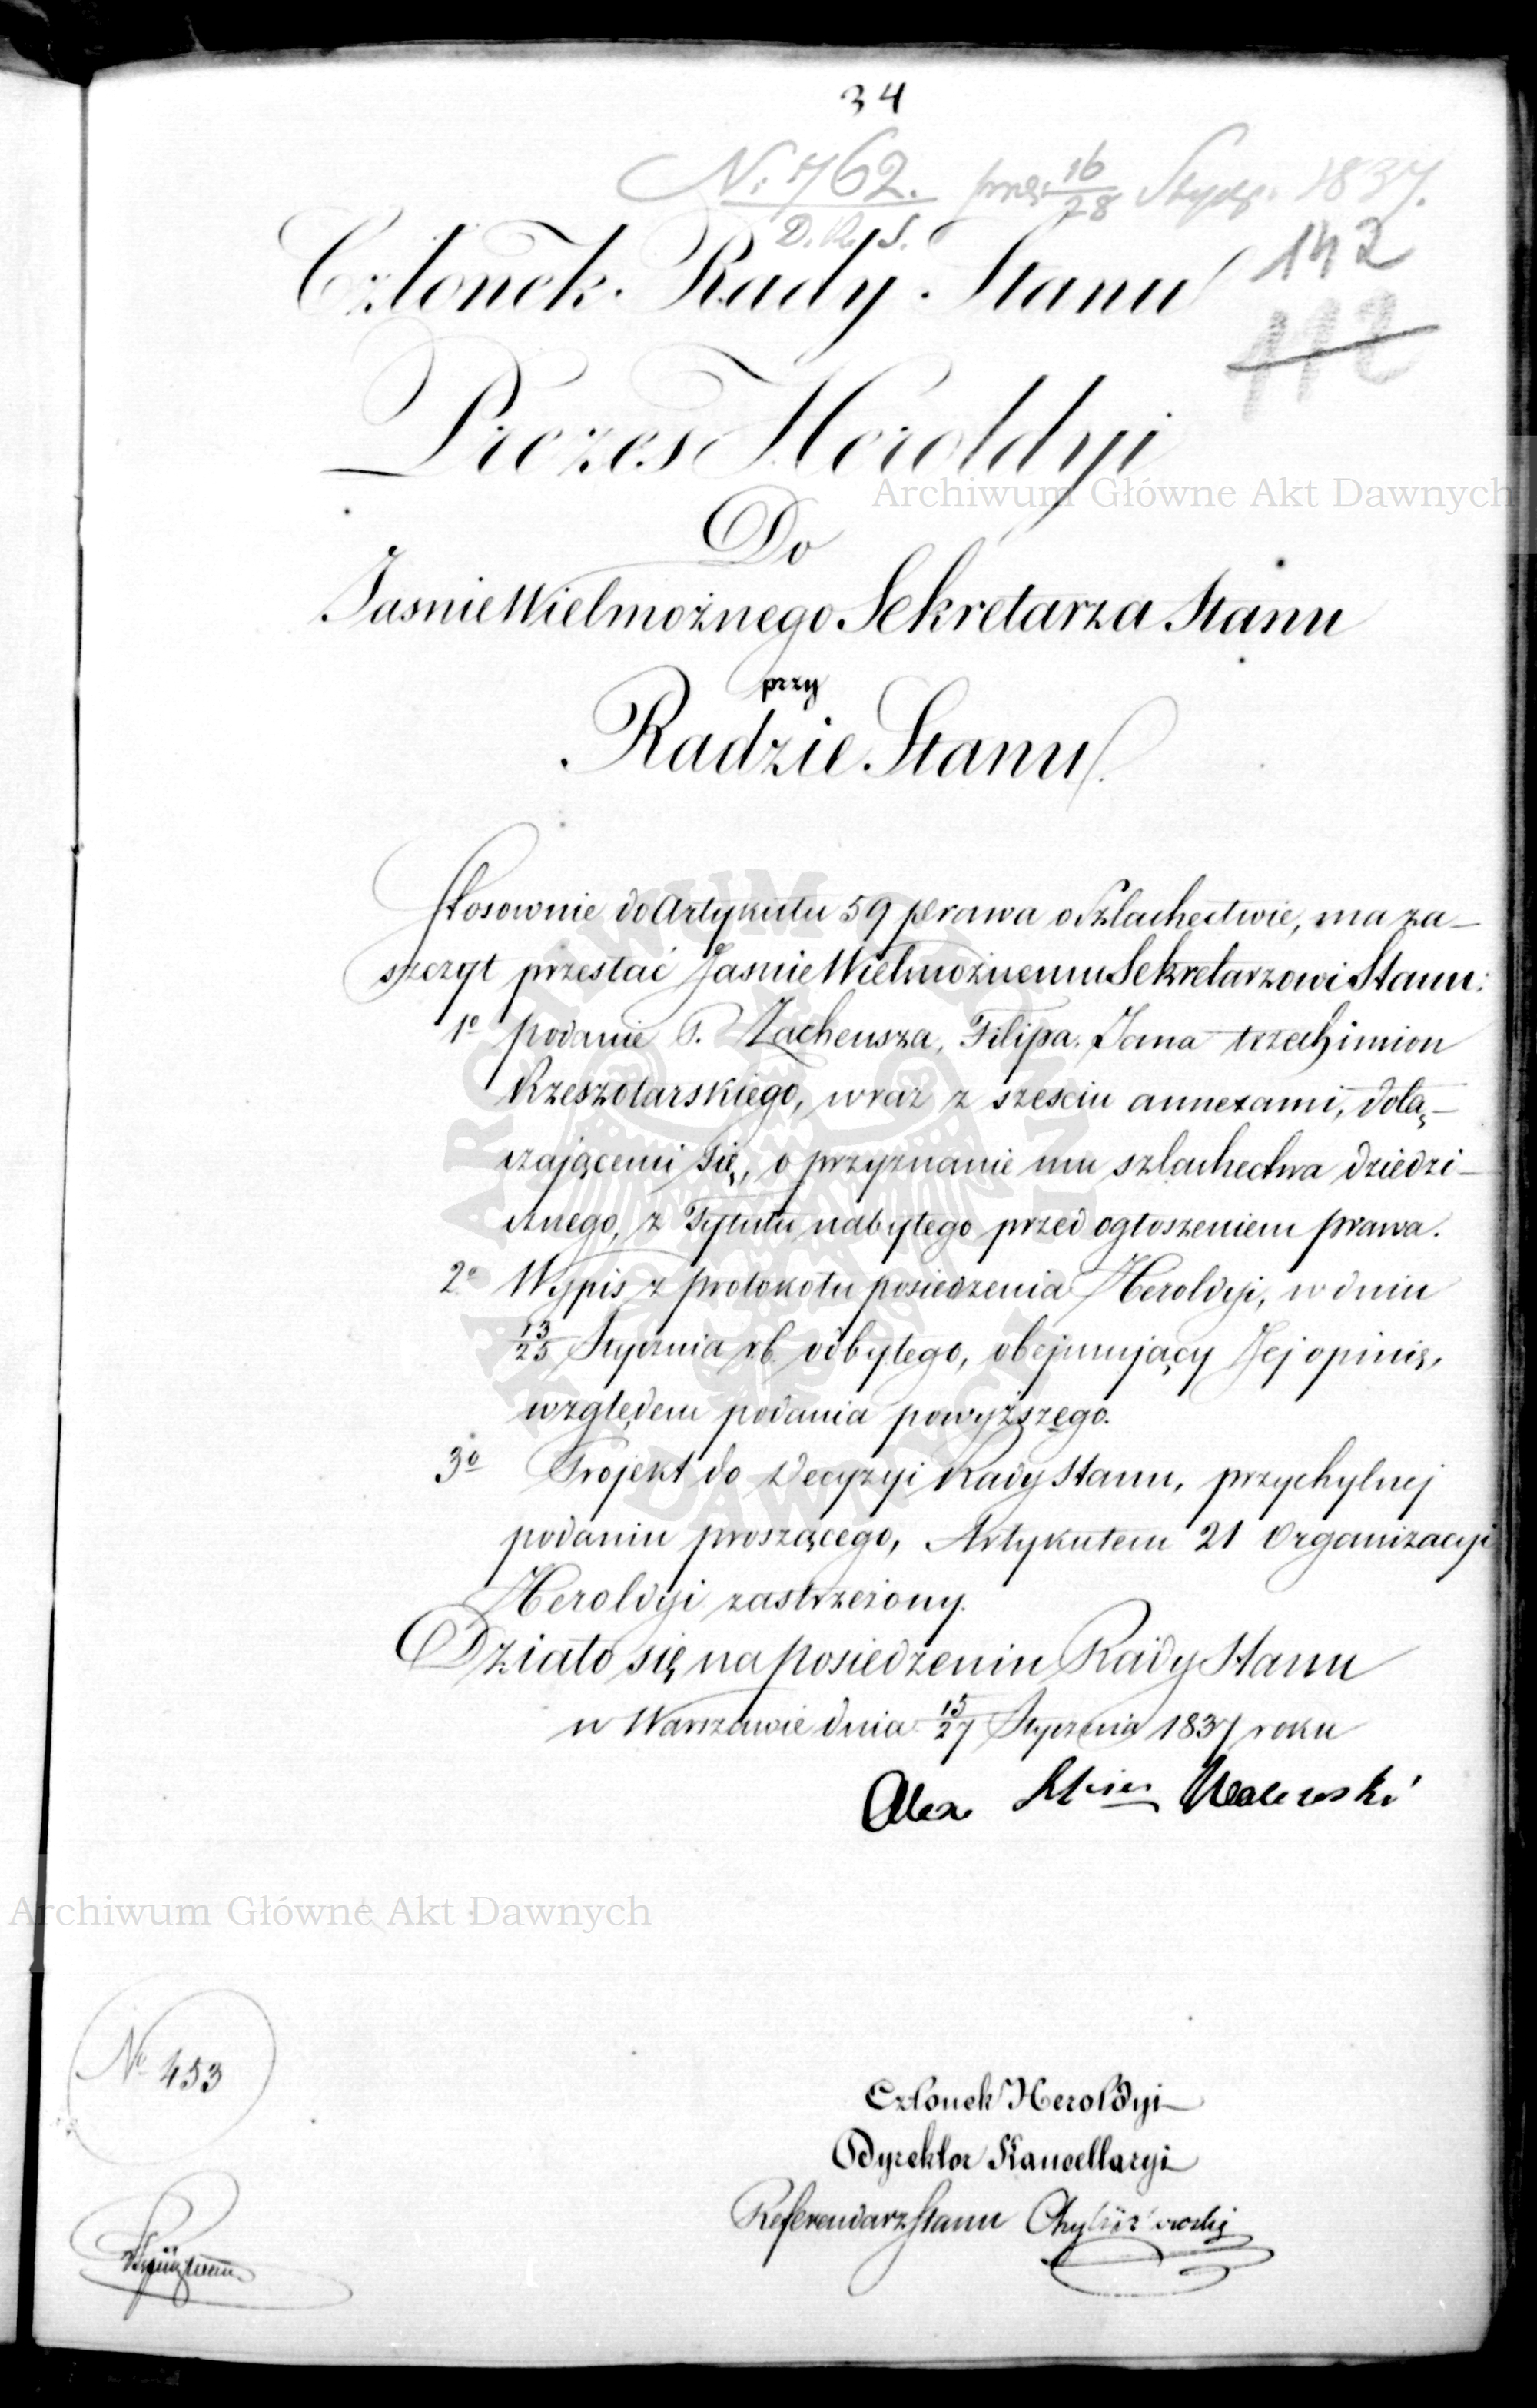 34
N. 762. prez. 16/28 Stycz. 1837.
D. R. S.
142
112
Członek Rady Stanu
Prezes Heroldyi
Do
Jasnie Wielmożnego Sekretarza Stanu
przy
Radzie Stanu.
Stosownie do Artykułu 59 prawa o Szlachectwie, ma za-
szczyt przesłać Jasnie Wielmożnemu Sekretarzowi Stanu:
1o podanie P. Zacheusza, Filipa, Jana trzech imion
Rzeszotarskiego, wraz z sześciu annexami, dołą-
czającemi się, o przyznanie mu szlachectwa dziedzi-
cznego, z Tytułu nabytego przed ogłoszeniem prawa.
2o Wypis z protokołu posiedzenia Heroldyi, w dniu
13/25 Stycznia r.b. odbytego, obejmujący Jej opinię,
względem podania powyższego.
3o Projekt do decyzyi Rady Stanu, przychylnej
podaniu proszącego, Artykułem 21 Organizacyi
Heroldyi zastrzeżony.
Działo się na posiedzeniu Rady Stanu
w Warszawie dnia 15/27 Stycznia 1837 roku
Alex Walewski
No 453
Członek Heroldyi
Dyrektor Kancellaryi
Referendarz Stanu
Archiwum Główne Akt Dawnych
Archiwum Główne Akt Dawnych
ARCHIWUM GŁÓWNE AKT DAWNYCH